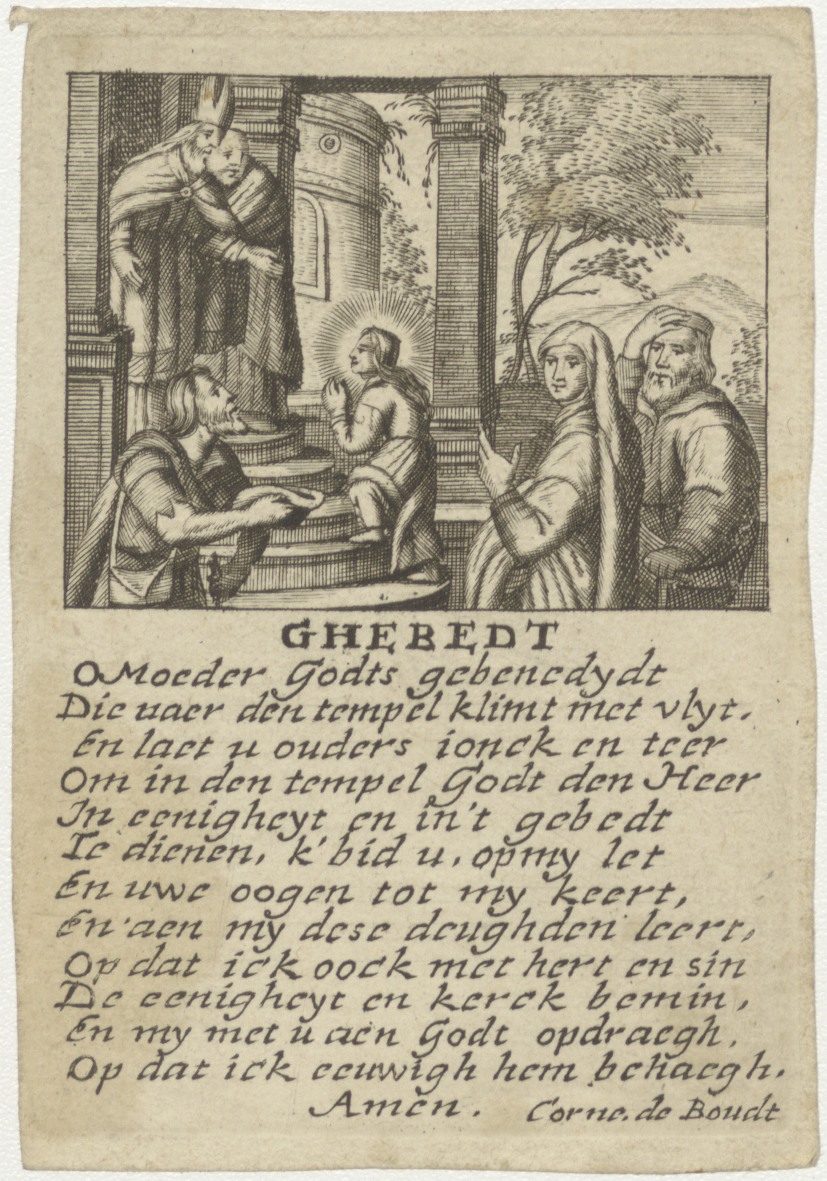 GHEBEDT
O Moeder Godts gebenedydt
Die uaer den tempel klimt met vlyt.
En laet u ouders ionck en teer
Om in den tempel Godt den Heer
In eenigheyt en in't gebedt
Te dienen, k'bid u, op my let
En uwe oogen tot my keert,
En aen my dese deughden leert,
Op dat ick oock met hert en sin
De eenigheyt en kerck bemin,
En my met u aen Godt opdraegh.
Op dat ick eeuwigh hem behaegh.
Amen. Corne. de Boudt